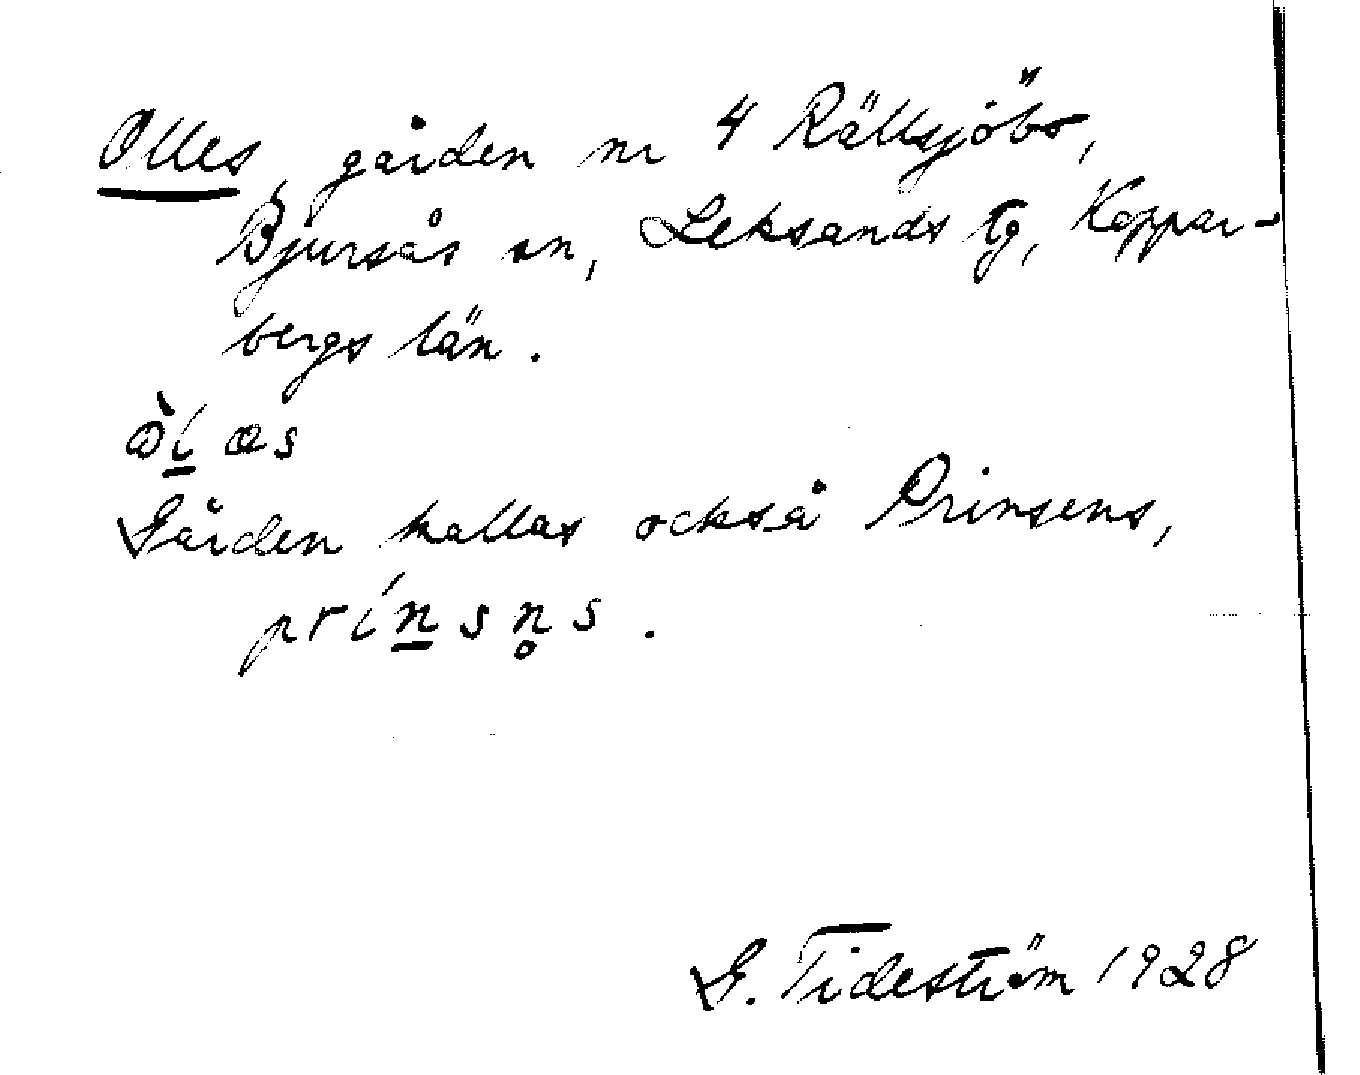 Olles, gården nr 4 Rällsjöbo,
Bjursås sn, Leksands tg, Koppar-
bergs län.
Gården kallas också Prinsens,
prínsn̥s.
G. Tideström 1928